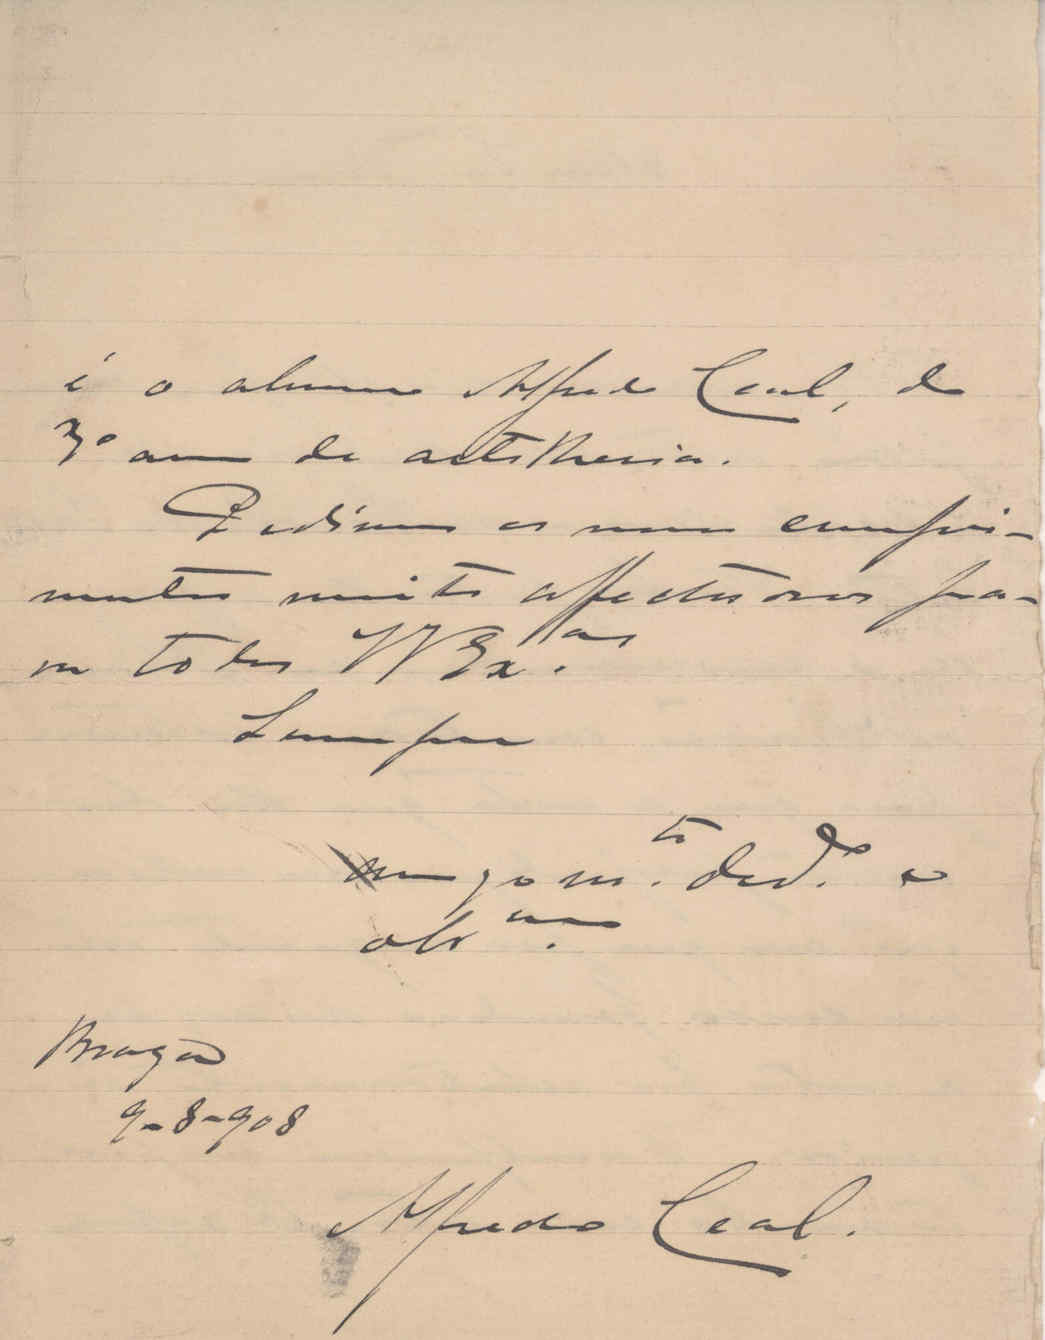 é o alumno Alfredo Leal, do
3º anno de artilheria.
Pedimos os meus cumpri-
mentos muito affectuosos pa-
ra todos VV Ex.as
Sempre
amigo m.to ded.º e
obr.mo
Braga
9-8-908
Alfredo Leal.